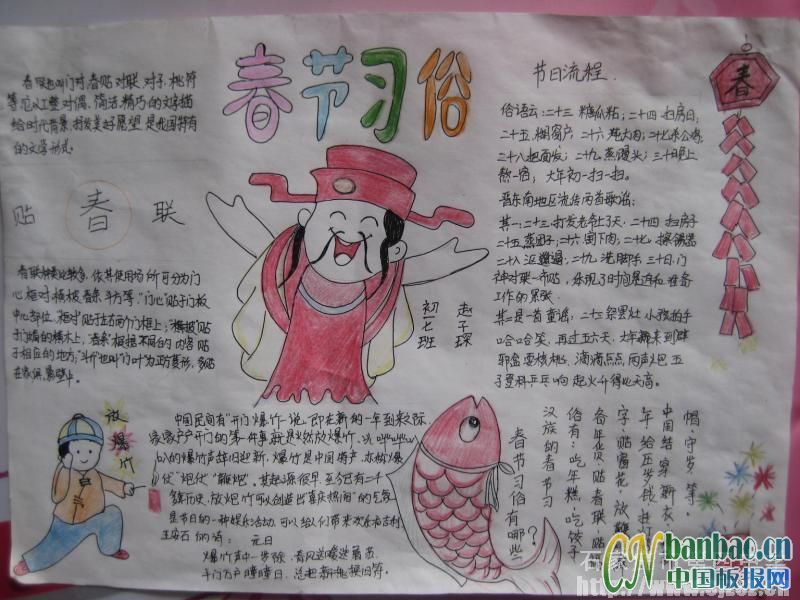 春节习俗
春联也叫门对、春贴、对联、对子、桃符
等,它以工整、对偶、简洁、精巧的文字描
绘时代背景,抒发美好愿望,是我国特有
的文学形式。
贴 春 联
春联种类比较多,依其使用场所,可分为门
心、框对、横披、春条、斗方等。“门心”贴于门板
中心部位,框对贴于左右两个门框上;“横披”贴
于门楣的横木上,“春条”根据不同的内容,贴
于相应的地方;“斗斤”也叫“门叶”为正方菱形,多贴
在家俱、影壁上。
节日流程
俗语云:二十三 糖瓜粘;二十四 扫房日;
二十五,糊窗户,二十六,炖大肉;二十七杀公鸡,
二十八把面发;二十九蒸馒头;三十晚上
熬一宿;大年初一扭一扭。
晋东南地区流传两首歌谣:
其一:二十三,打发老爷上了天,二十四,扫房子
二十五,蒸团子;二十六,割下肉,二十七,擦锡器
二十八沤邋遢,二十九,洗脚手,三十日,门
神对联一齐贴,
工作的紧张
其二是一首童谣,二十三,祭罢灶,小孩拍手
哈哈笑,再过五六天,大年就来到,辟
邪盒,耍核桃,滴滴点点两声炮,五
子登科乒乓响,起火升得比天高。
赵子琛
初一七班
春
放爆竹
中国民间有“开门爆竹”一说,即在新的一年到来之际,
家家户户开门的第一件事就是燃放爆竹,以
的爆竹声辞旧迎新,爆竹是中国特产,亦称“爆
仗”“炮仗”“鞭炮”。其起源很早,至今已有二千
余年历史,放炮竹可以创造出喜庆热闹的气氛
是节日的一种娱乐活动,可以给人们带来欢乐和吉利
王安石的诗: 元日
爆竹声中一岁除,春风送暖送屠苏,
千门万户瞳瞳日,总把新桃换旧符。
春节习俗有哪些?
汉族的春节习
俗有:吃年糕、吃饺子
各年货、贴春联、贴福
字、贴窗花、放鞭炮
年给压岁钱、挂灯
中国结、穿新衣
帽、守岁等。
CN banbao.cn
中国板报网